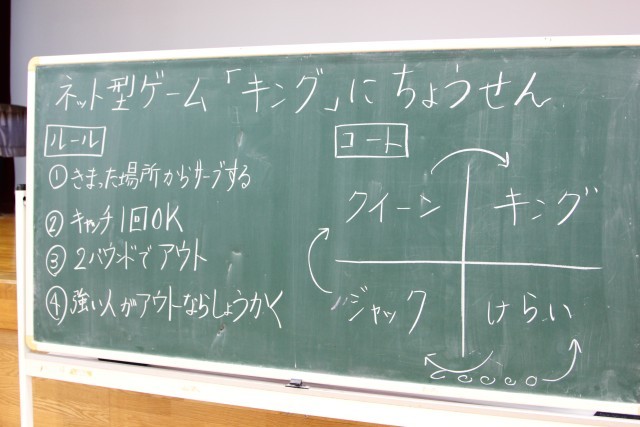 ネット型ゲーム「キング」にちょうせん
ルール
①きまった場所からサーブする
②キャッチ1回OK
③2バウンドでアウト
④強い人がアウトならしょうかく
コート
クイーン
キング
ジャック
けらい